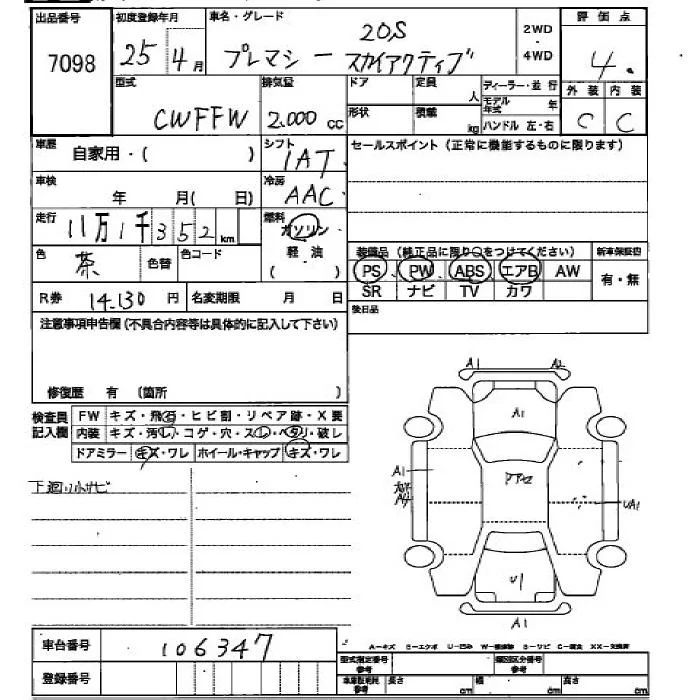 出品番号 初度登録年月 車名・グレード 20S 2WD ・ 4WD 評価点
7098 25年4月 プレマシー スカイアクティブ 4.
型式 排気量 ドア 定員 人 ディーラー・並行 外装 内装
CWFFW 2.000cc 形状 積載 kg モデル年式 年 ハンドル 左・右 C C
車歴 自家用・( ) シフト IAT セールスポイント (正常に機能するものに限ります)
車検 年 月( 日) 冷房 AAC
走行 11万1千352km 燃料 ガソリン
色 茶 色替 色コード 軽油 ( )
装備品 (純正品に限り○をつけてください) 新車保証書
PS、PW、ABS エアB AW 有・無
SR ナビ TV カワ
R券 14.130円 名変期限 月 日 後日品
注意事項申告欄(不具合内容等は具体的に記入して下さい)
修復歴 有 (箇所 )
検査員記入欄 FW キズ・飛石・ヒビ割・リペア跡・X要
内装 キズ・汚レ・コゲ・穴・スレ・ヘタリ・破レ
ドアミラー キズ・ワレ ホイール・キャップ キズ・ワレ
下廻り小サビ
A1 A2
A1
A1
A4
UA1
U1
A1
車台番号 106347
登録番号
A-キズ E-エクボ U-凹み
型式指定番号 参考 類別区分番号 参考
参考 長さ cm 幅 cm 高さ cm